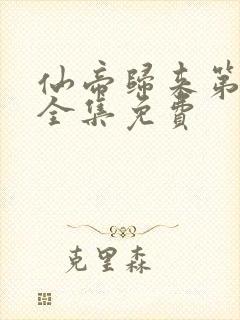 仙帝歸來第
全集免費
克里森